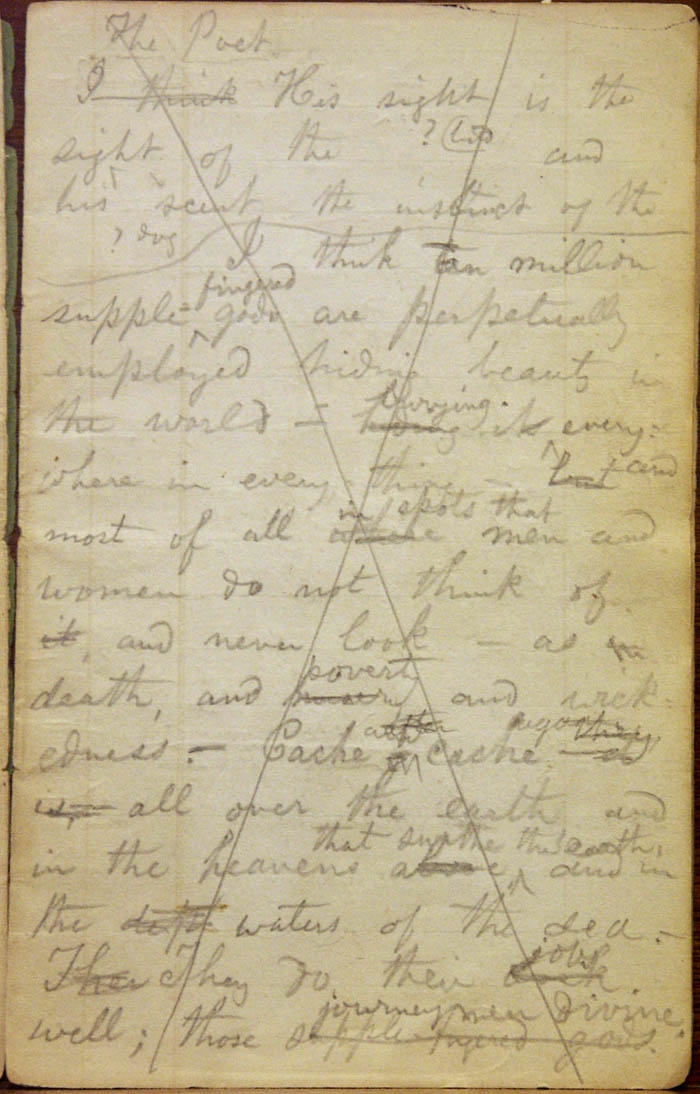 The Poet
I think His sight is the
? bird
sight of the and
his scent the instinct of the
? dog
I think ten million
fingered
supple- gods are perpetually
employed hiding beauty in
burying
the world — hiding it every-
where in every thing — but and
in spots that
most of all where men and
women do not think of
it, and never look — as in
povert
death, and misery and wick-
edness. — Cache after cache
is, all over the earth and
that swathe the earth,
in the heavens above, and in
the depth waters of the sea. —
job
They do their work
journeymen divine.
well; those supple-fingered gods.